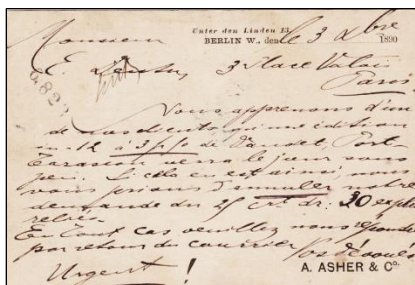 Unter den Linden 13.
BERLIN W., den le 3 Xbre 1890
Monsieur
E. 3 Place Valois
Paris.
6823
Vous apprenons d'un
de nos clients qu'une édition
in-12 à 3 f 50 de Daudet, Port-
Tarascon verra le jour sous
peu. Si cela en est ainsi, nous
vous prions d'annuler notre
demande du 25 ct de 30 expl.
reliés.
En tout cas veuillez nous répondre
par retour du courrier. Vos dévoués
Urgent ! A. ASHER & Co.